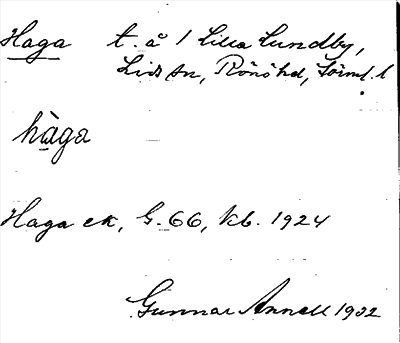 Haga t. å 1 Lilla Lundby,
Lids sn, Rönö hd, Sörml. l
hàga
Haga ek, G. 66, kb. 1924
Gunnar Annell 1932